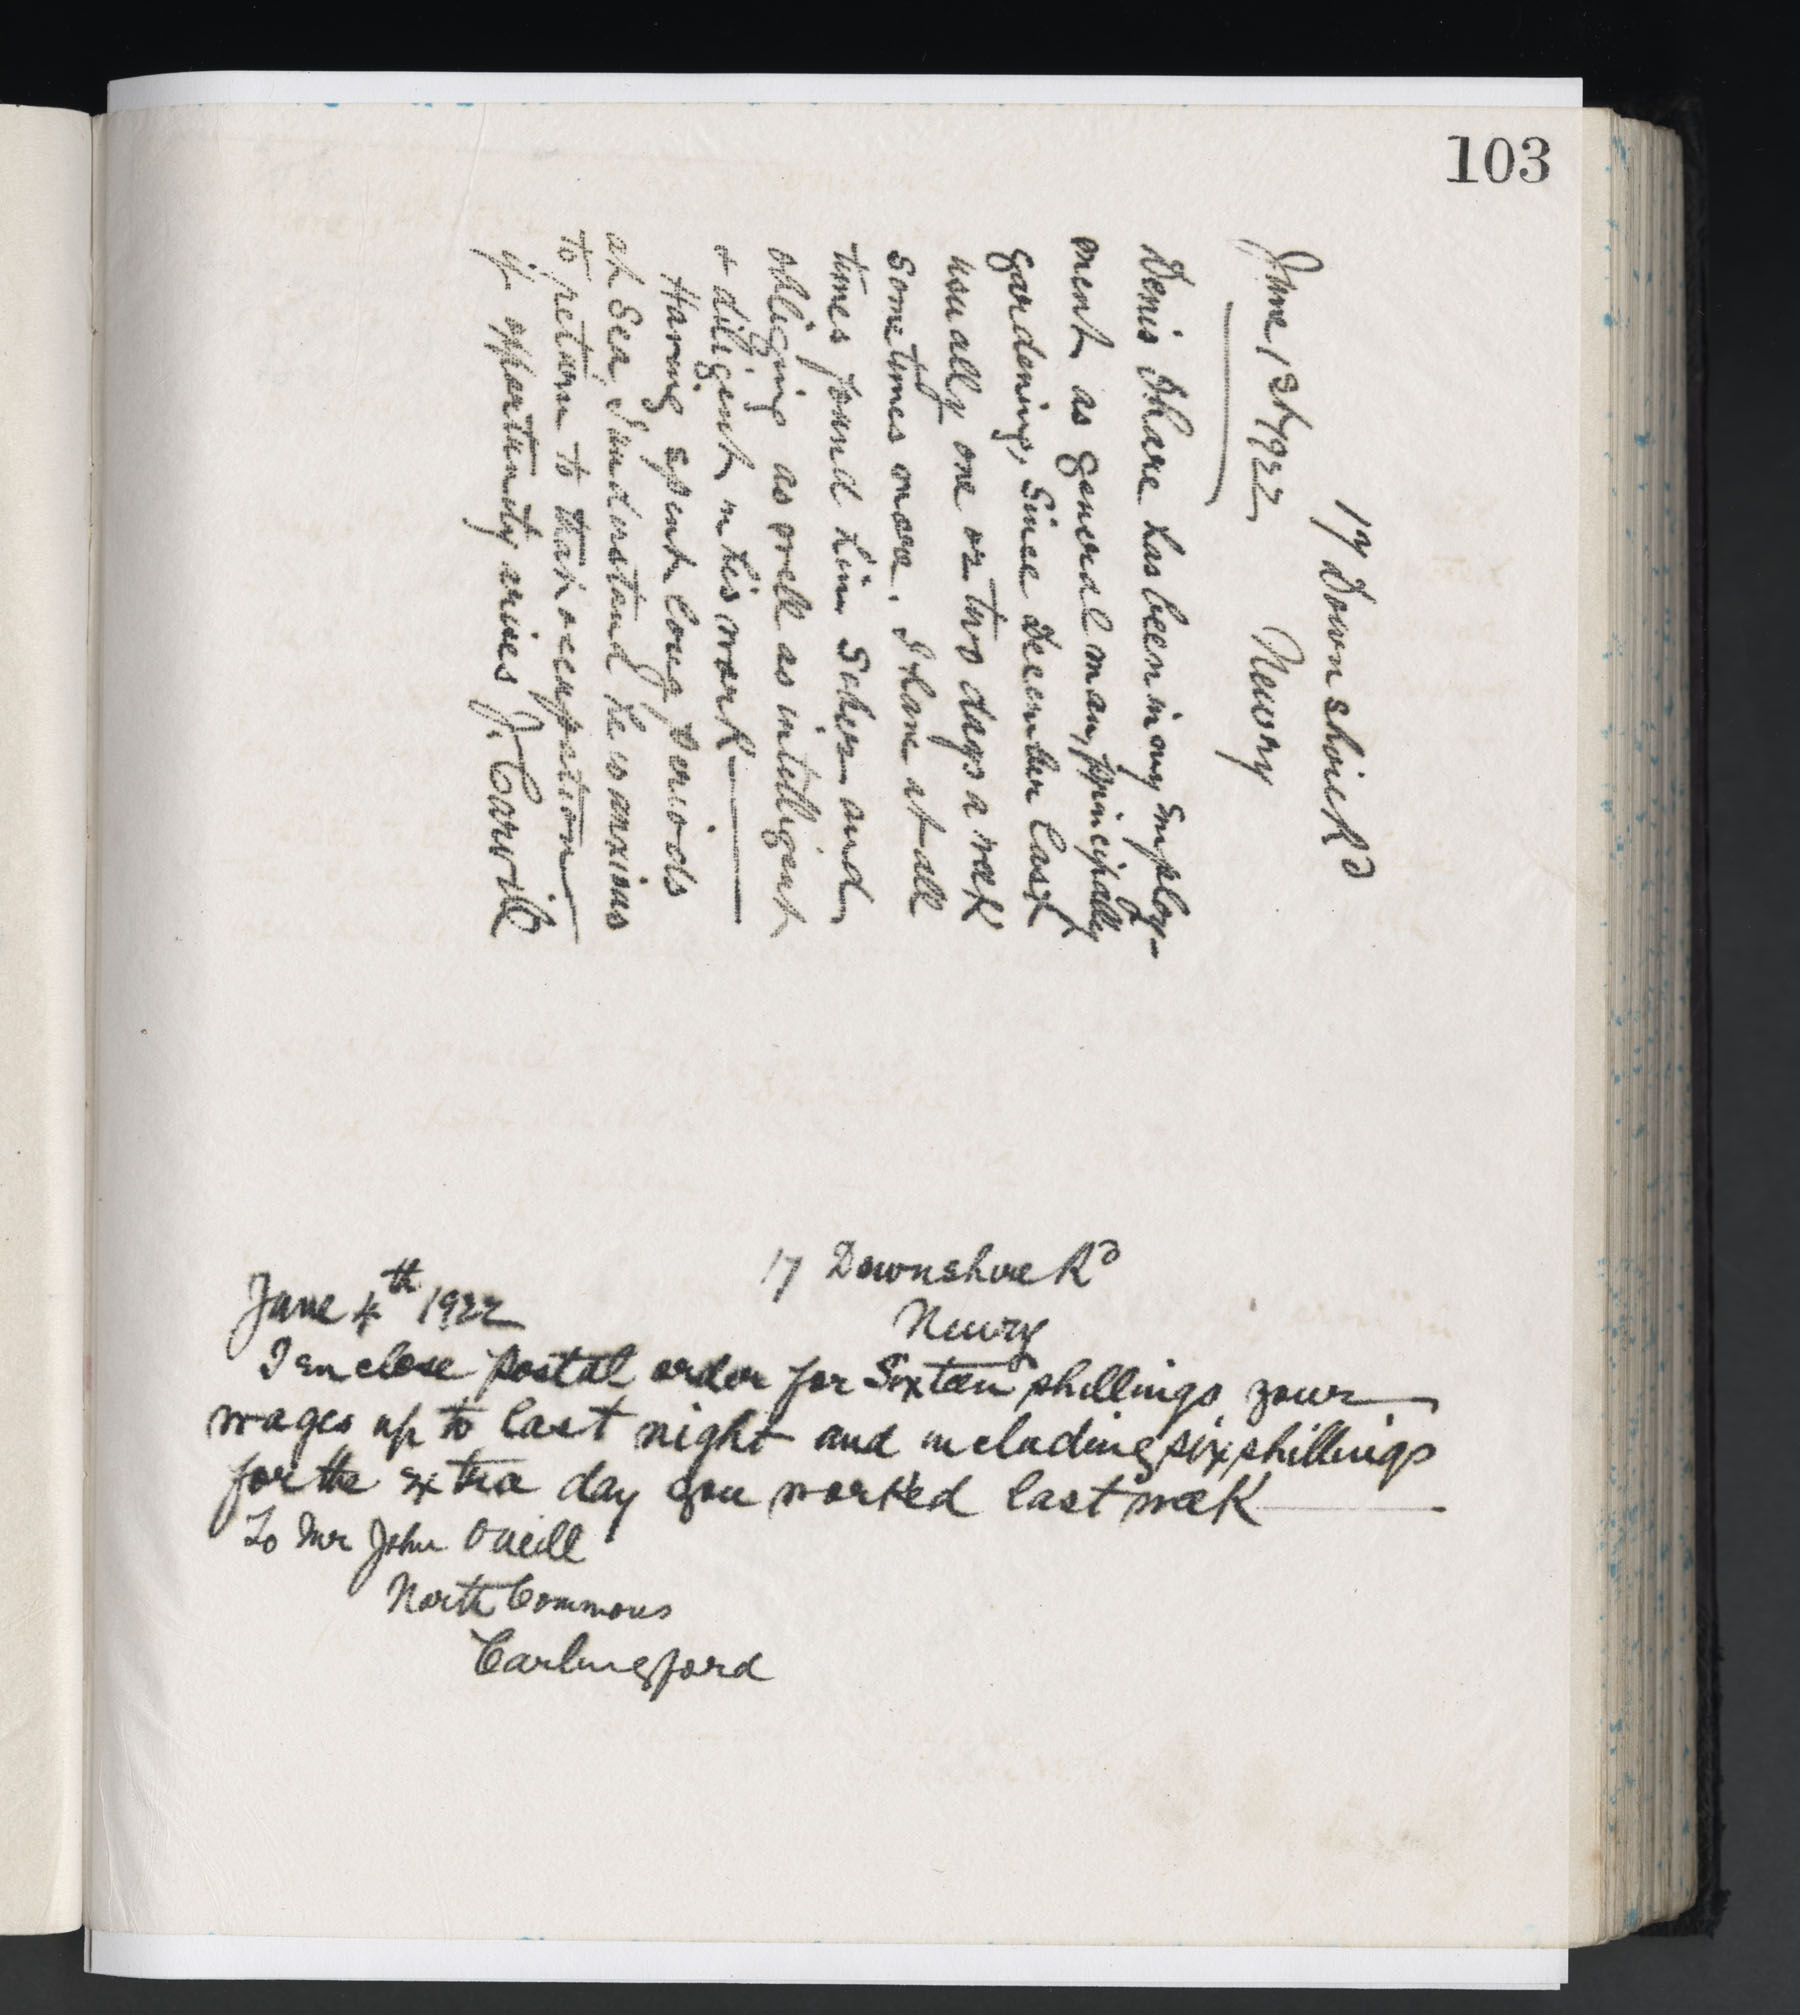 103
17 Downshire Rd
June 1st 1922 Newry
Denis Ohare has been in my Employ-
ment as general man, principally
gardening, Since December last
usually one or two days a week
Sometimes more. I have at all
times found him Sober and
obliging as well as intelligent
& diligent in his work
Having spent long periods
at Sea, I understand he is anxious
to return to that occupation
if opportunity arises J. Carvill
17 Downshire Rd
June 4th 1922 Newry
I enclose postal order for Sixteen shillings your
wages up to last night and including six shillings
for the extra day you worked last week
To Mr John Oneill
North Commons
Carlingford